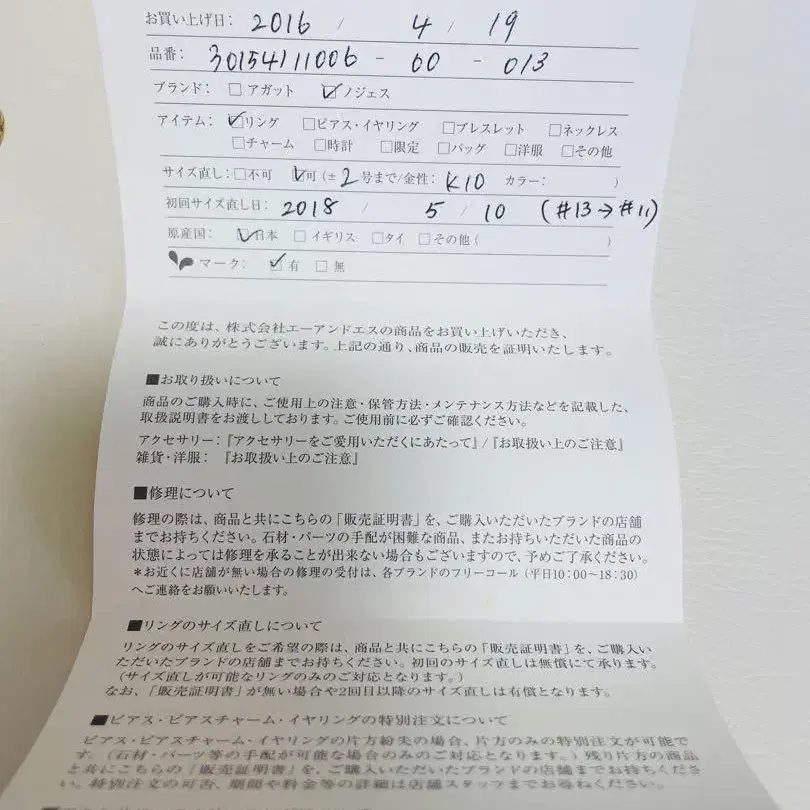 お買い上げ日: 2016 / 4 / 19
品番: 30154111006 - 00 - 013
ブランド: □ アガット ☑ ノジェス
アイテム: ☑リング □ピアス・イヤリング □ブレスレット □ネックレス
□チャーム □時計 □限定 □バッグ □洋服 □その他
サイズ直し: □不可 ☑可(± 2 号まで/金性: K10 カラー: )
初回サイズ直し日: 2018 / 5 / 10 (#13→#11)
原産国: ☑日本 □イギリス □タイ □その他( )
マーク: ☑有 □無
この度は、株式会社エーアンドエスの商品をお買い上げいただき、
誠にありがとうございます。上記の通り、商品の販売を証明いたします。
■お取り扱いについて
商品のご購入時に、ご使用上の注意・保管方法・メンテナンス方法などを記載した、
取扱説明書をお渡ししております。ご使用前に必ずご確認ください。
アクセサリー:『アクセサリーをご愛用いただくにあたって』/『お取扱い上のご注意』
雑貨・洋服: 『お取扱い上のご注意』
■修理について
修理の際は、商品と共にこちらの「販売証明書」を、ご購入いただいたブランドの店舗
までお持ちください。石材・パーツの手配が困難な商品、またお持ちいただいた商品の
状態によっては修理を承ることが出来ない場合もございますので、予めご了承ください。
*お近くに店舗が無い場合の修理の受付は、各ブランドのフリーコール(平日10:00~18:30)
へご連絡をお願いいたします。
■リングのサイズ直しについて
リングのサイズ直しをご希望の際は、商品と共にこちらの「販売証明書」を、ご購入い
ただいたブランドの店舗までお持ちください。初回のサイズ直しは無償にて承ります。
(サイズ直しが可能なリングのみのご対応となります。)
なお、「販売証明書」が無い場合や2回目以降のサイズ直しは有償となります。
■ピアス・ピアスチャーム・イヤリングの特別注文について
ピアス・ピアスチャーム・イヤリングの片方紛失の場合、片方のみの特別注文が可能で
す。(石材・パーツ等の手配が可能な場合のみのご対応となります。)残り片方の商品
と共にこちらの「販売証明書」を、ご購入いただいたブランドの店舗までお持ちくださ
い。特別注文の可否、期間や料金等の詳細は店舗スタッフまでお尋ねください。